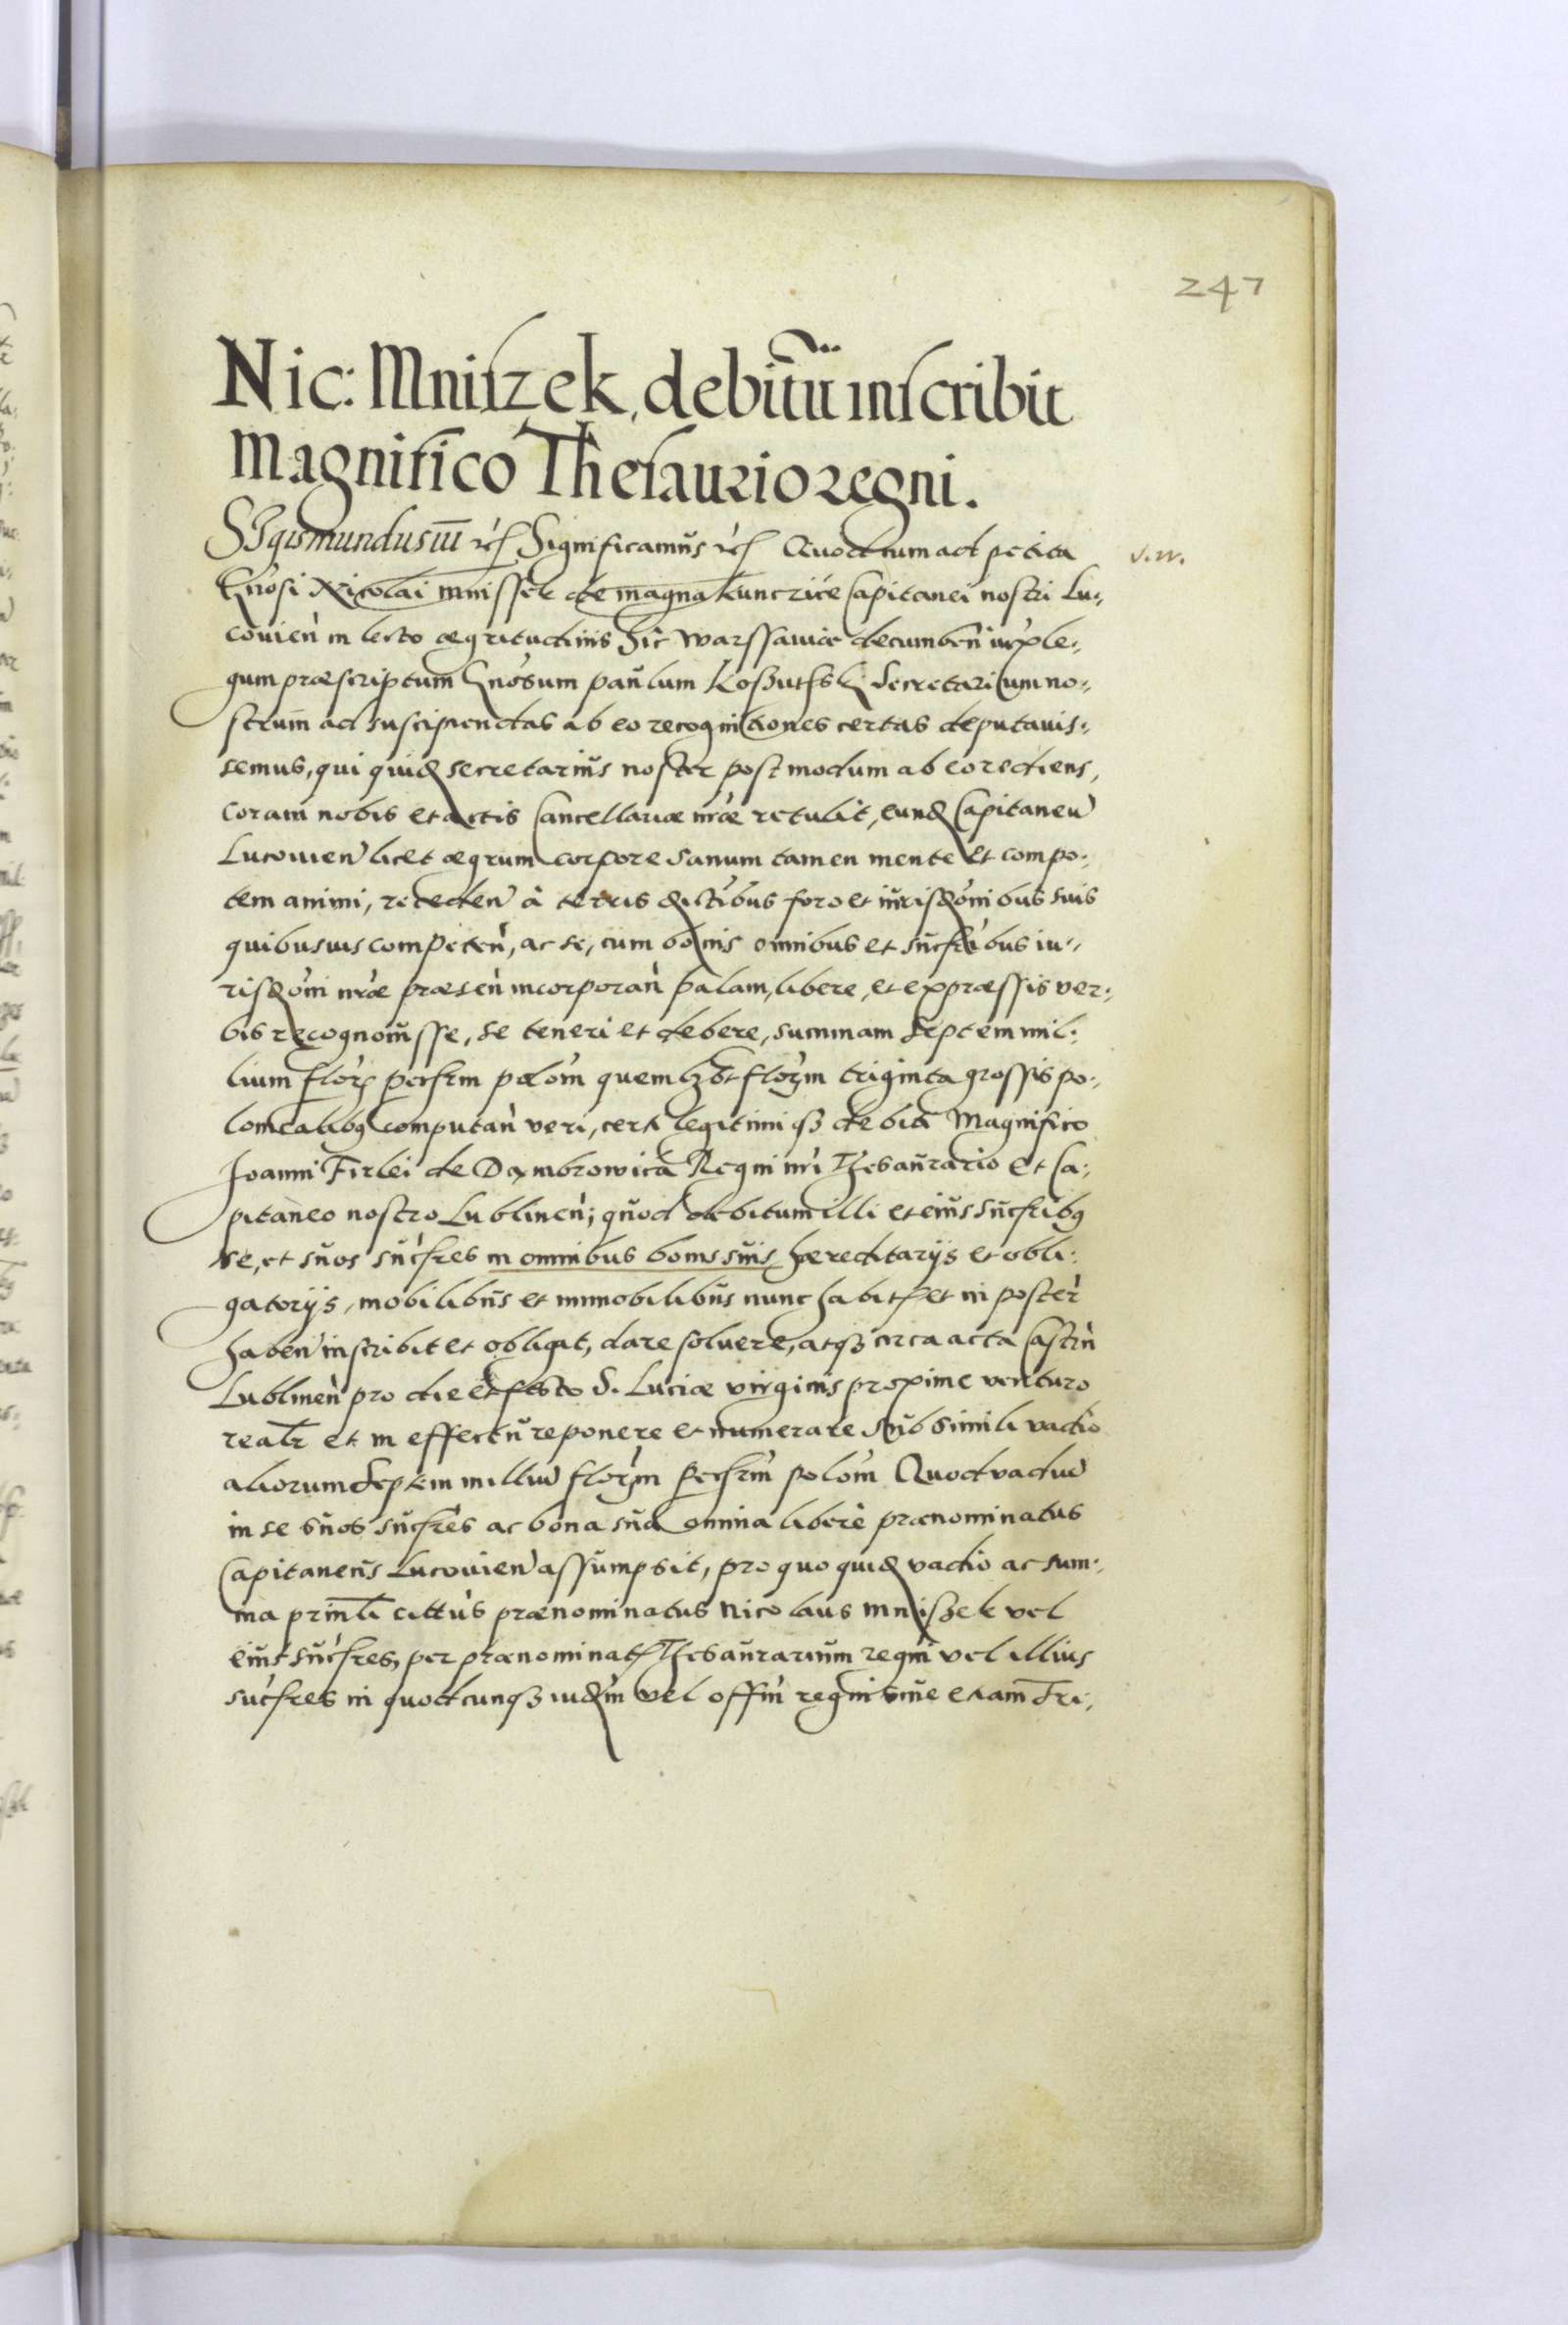 247
Nic: Mniszek, debitū inscribit
Magnifico Thesaurio regni.
SIgismundus iii rc̃ Significamus rc̃ Quod cum ad petita
Gnosi Nicolai Mnissek de magna kunczice Capitanei nostri Lu-
covień in lecto ægritudinis hic Warssaviæ decumbeń iuxta le-
gum præscriptum Gnosum Paulum Koszutski Secretarium no-
strum ad suscipiendas ab eo recognitiones certas deputavis-
semus, qui quid secretarius noster postmodum ab eo rediens,
coram nobis et actis Cancellariæ nræ retulit, eund Capitaneū
Lucovień licet ægrum corpore sanum tamen mente et compo-
tem animi, receden à terris districtibus foro et iurisdōnibus suis
quibusvis competeń, ac se, cum bonis omnibus et sucribus iu-
risdōni nræ præseń incorporań palam, libere, et expræssis ver-
bis recognovisse, se teneri et debere, summam septem mil-
lium floř pecḿ poloń quemlibet flořm triginta grossis po-
lonicalibus computań veri, certi legitimique debiti Magnifico
Joanni Firlei de Dambrowica Regni nri Thesaurario et Ca-
pitaneo nostro Lublineń; quod debitum illi et eius sucribus
se, et suos sucres in omnibus bonis suis hæreditarijs et obli-
gatorijs, mobilibus et immobilibus nunc habit et in poster
haben inscribit et obligat, dare solvere, atque circa acta Castrń
Lublineń pro die et festo S. Luciæ virginis proxime venturo
realr et in effectu reponere et numerare sub simili vadio
aliorum septem milliū flořm pecḿ poloń Quod vadiū
in se suos sucres ac bona sua omnia liberè prænominatus
Capitaneus Lucovień assumpsit, pro quo quid vadio ac sum-
ma prinli citŭs prænominatus Nicolaus Mniszek vel
eius sucres, per prænominat Thesaurarium regni vel illius
sucres in quodcunque iudm vel offm regni sive etiam Tri-